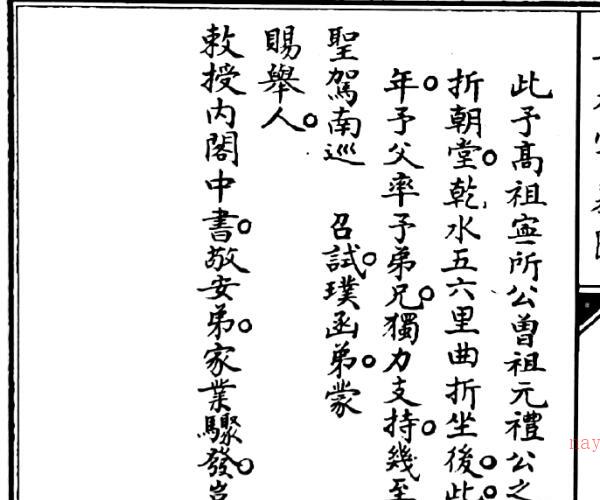 此予髙祖寍所公曽祖元禮公之
折朝堂。乾水五六里曲折坐後。此。
年。予父率予弟兄。獨力支持。幾至
聖駕南巡 召試。璞函弟。蒙
賜舉人。
敕授内閣中書。敬安弟。家業驟發。豈
nay